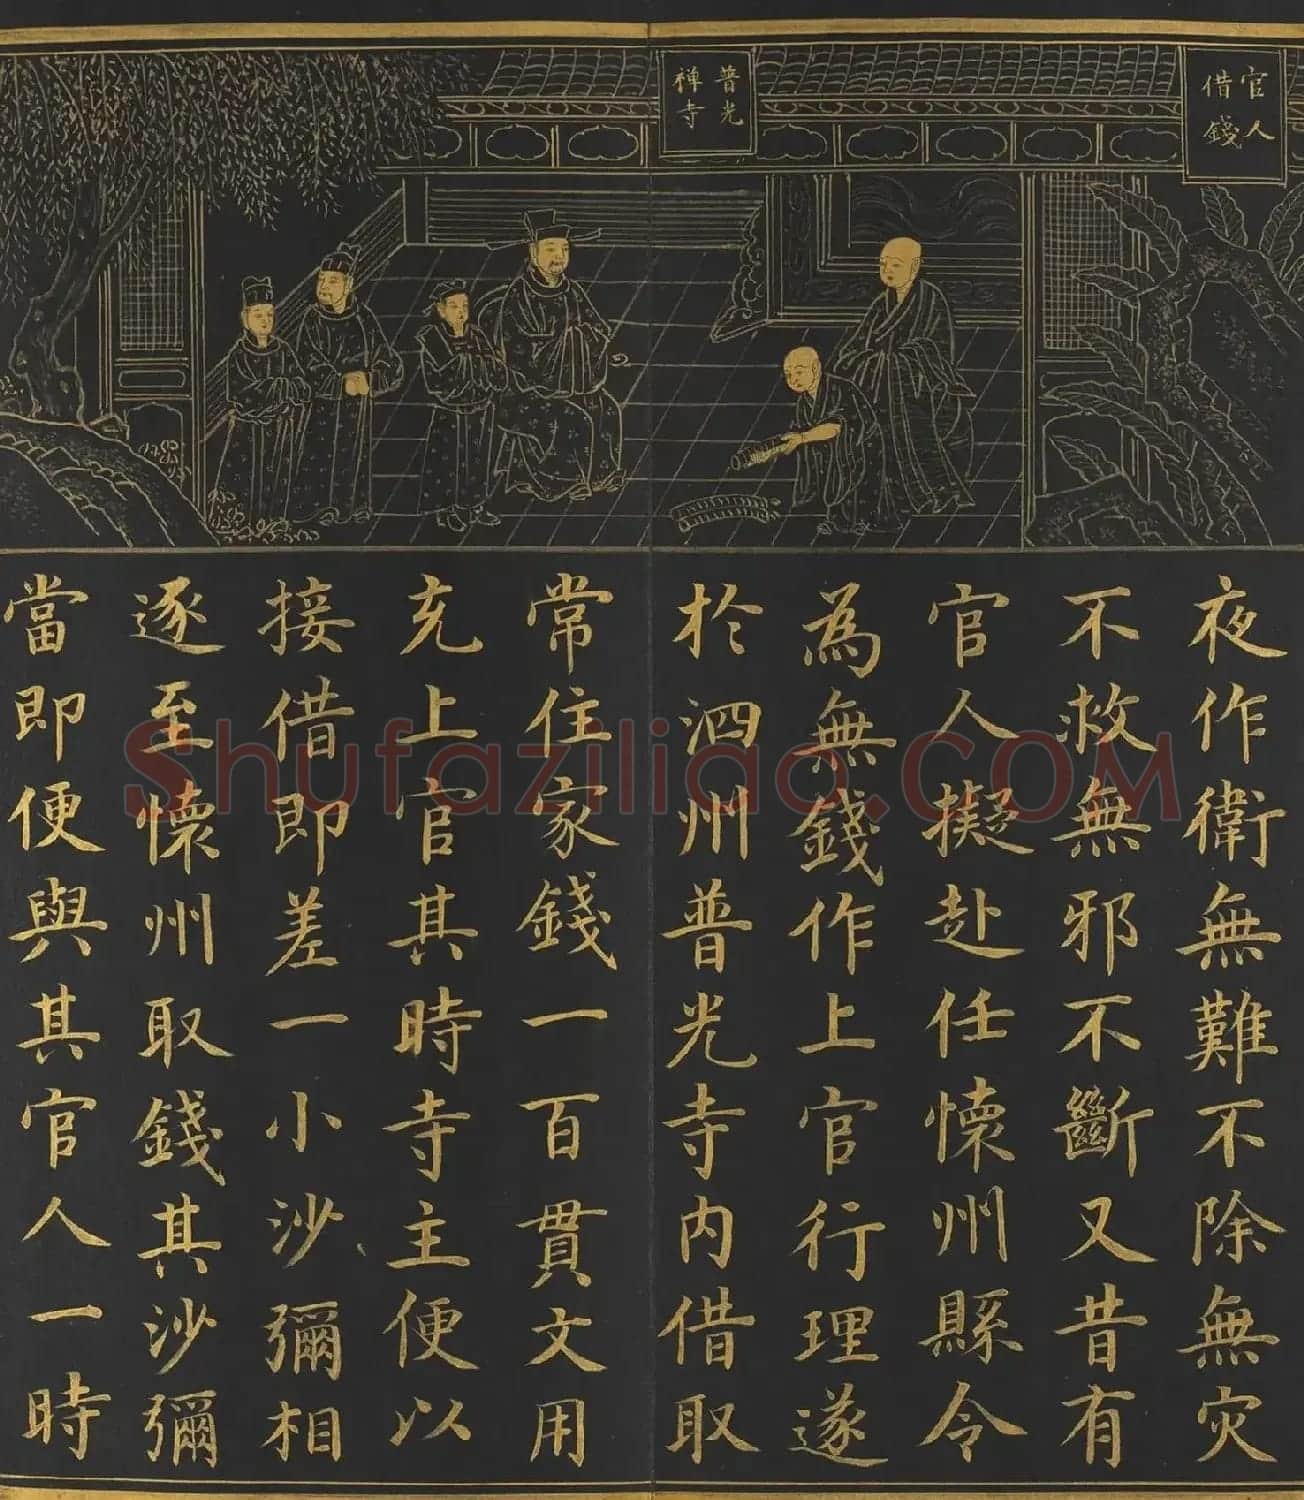 官人
借錢
普光
禅寺
夜作衛無難不除無灾
不救無邪不斷又昔有
官人擬赴任懐州縣令
為無錢作上官行理遂
於泗州普光寺内借取
常住家錢一百貫文用
充上官其時寺主便以
接借即差一小沙彌相
逐至懐州取錢其沙彌
當即便與其官人一時
Shufaziliao.COM